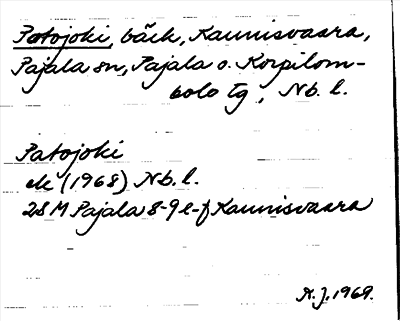 Patojoki, bäck, Kaunisvaara,
Pajala sn, Pajala o. Korpilom-
bolo tg, Nb. l.
Patojoki
ek (1968) Nb. l.
28 M Pajala 8-9 e-f Kaunisvaara
A.J. 1969.